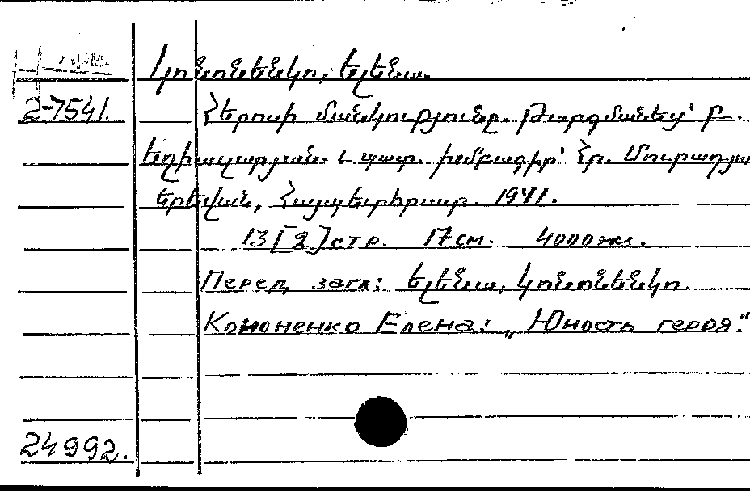 Կոնոնենկո, Ելենա.
2-7541. Հերոսի մանկությունը. Թարգմանեց՝ Բ.
Եղիազարյան և պատ. խմբագիր՝ Հր. Մուրադյա
Երևան, Հայպետհրատ. 1941.
13 [2] стр. 17 см. 4000 экз.
Перед загл: Ելենա, Կոնոնենկո.
Кононенко Елена: „Юность героя."
24992.